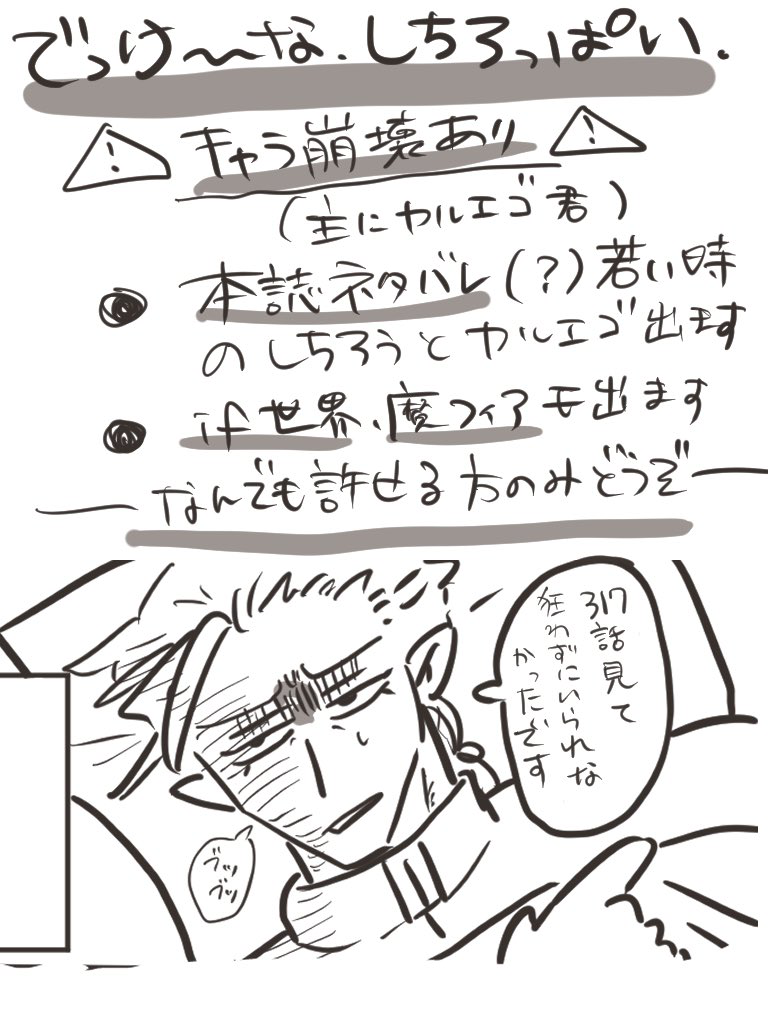 でっけ〜な.しちろっぱい.
! キャラ崩壊あり !
(主にカルエゴ君)
本誌ネタバレ(?)若い時
のしちろうとカルエゴ出ます
if世界、魔フィアも出ます
なんでも許せる方のみどうぞ
317話見て
狂わずにいられな
かったです
ブツ
ブツ